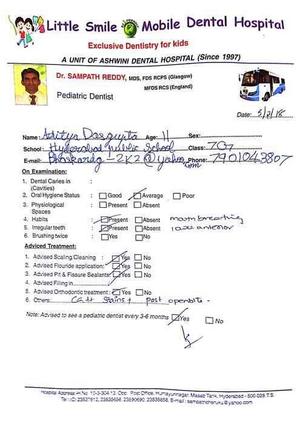 Little Smile Mobile Dental Hospital
Exclusive Dentistry for kids
A UNIT OF ASHWINI DENTAL HOSPITAL (Since 1997)
Dr. SAMPATH REDDY, MDS, FDS RCPS (Glasgow)
MFDS RCS (England)
Pediatric Dentist
Date: 5/2/18
Name: Aditya Dasgupta Age: 11 Sex:
School: Hyderabad Public School Class: 7
E-mail: @yahoo.com Phone: 7901043807
On Examination:
1. Dental Caries in (Cavities)
2. Oral Hygiene Status : Good Average Poor
3. Physiological Spaces : Present Absent
4. Habits : Present Absent mouth breathing
5. Irregular teeth : Present Absent anterior
6. Brushing twice : Yes No
Adviced Treatment:
1. Advised Scaling Cleaning : Yes No
2. Advised Flouride application: Yes No
3. Advised Pit & Fissure Sealants: Yes No
4. Advised Filling in
5. Advised Orthodontic treatment : Yes No
6. Others: stains + post openbite
Note: Advised to see a pediatric dentist every 3-6 months Yes No
Hospital Address: H No. 10-3-304 Opp. Post Office, Humayunnagar, Masab Tank, Hyderabad - 500 028 T.S.